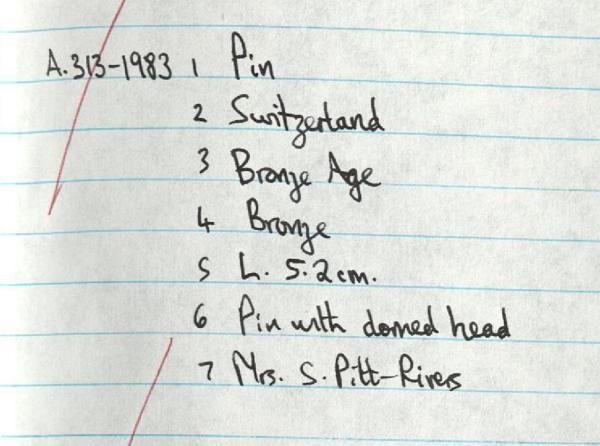 A.313-1983 1 Pin
2 Switzerland
3 Bronze Age
4 Bronze
5 L. 5.2cm.
6 Pin with domed head
7 Mrs. S. Pitt-Rivers